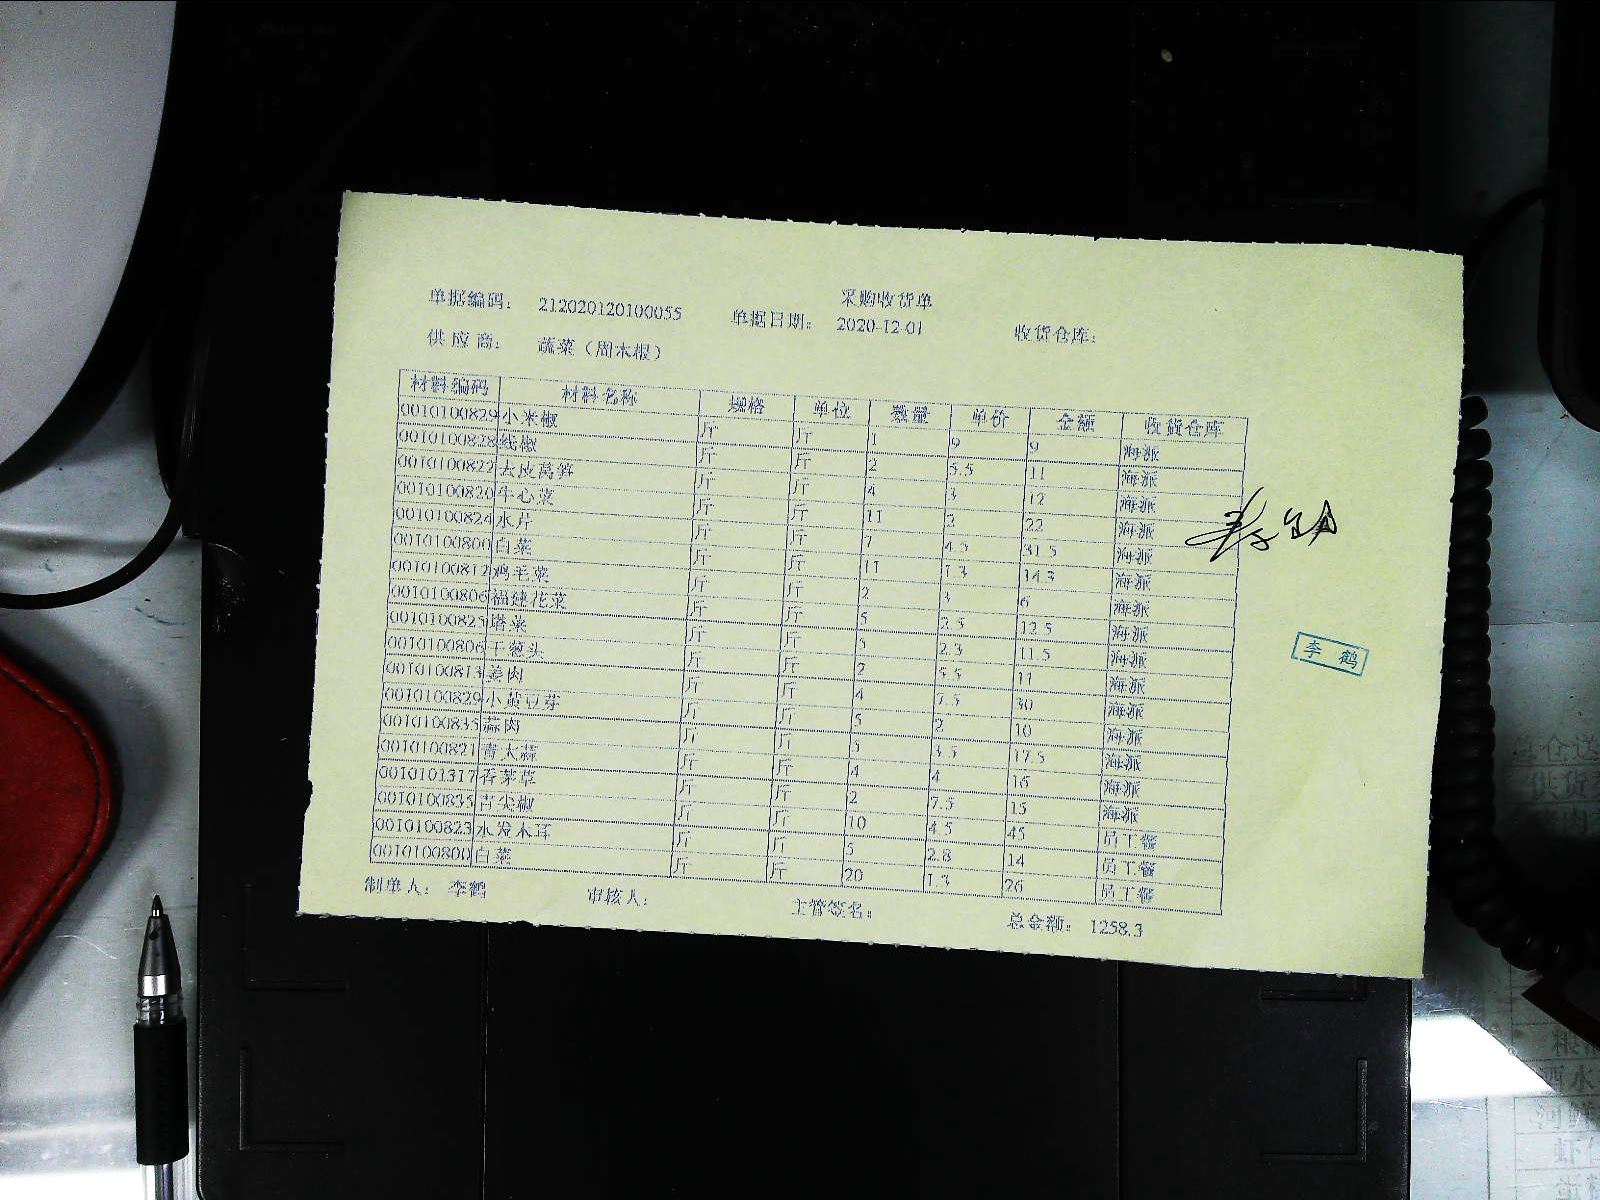 采购收货单
单据编码： 212020120100055 单据日期： 2020-12-01 收货仓库：
供 应 商： 蔬菜（周末根）
材料编码 材料名称 规格 单位 数量 单价 金额 收货仓库
0010100829 小米椒 斤 斤 1 9 9 海派
0010100828 线椒 斤 斤 2 5.5 11 海派
0010100822 去皮莴笋 斤 斤 4 3 12 海派
0010100820 牛心菜 斤 斤 11 2 22 海派
0010100824 水芹 斤 斤 7 4.5 31.5 海派
0010100800 白菜 斤 斤 11 1.3 14.3 海派
0010100812 鸡毛菜 斤 斤 2 3 6 海派
0010100806 福建花菜 斤 斤 5 2.5 12.5 海派
0010100825 塔菜 斤 斤 5 2.3 11.5 海派
0010100806 干葱头 斤 斤 2 5.5 11 海派
0010100813 姜肉 斤 斤 4 7.5 30 海派
0010100829 小黄豆芽 斤 斤 5 2 10 海派
0010100835 蒜肉 斤 斤 5 3.5 17.5 海派
0010100821 青大蒜 斤 斤 4 4 16 海派
0010101317 香茅草 斤 斤 2 7.5 15 海派
0010100835 青尖椒 斤 斤 10 4.5 45 员工餐
0010100823 水发木耳 斤 斤 5 2.8 14 员工餐
0010100800 白菜 斤 斤 20 1.3 26 员工餐
制单人： 李鹤 审核人： 主管签名： 总金额： 1258.3
李 鹤